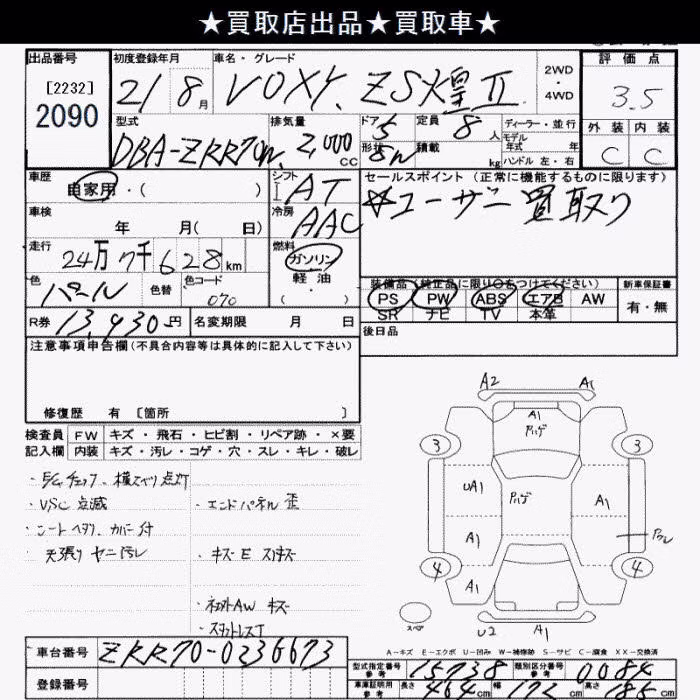 ★買取店出品★買取車★
出品番号
[2232]
2090
初度登録年月
21 8月
車名・グレード
VOXY. ZS煌Ⅱ
2WD・4WD
評価点
3.5
型式
DBA-ZRR70W
排気量
2,000cc
ドア
5
形状
5W
定員
8人
積載
kg
ディーラー・並行
モデル年式 年
ハンドル 左・右
外装 内装
C C
車歴
自家用・( )
シフト
AT
セールスポイント(正常に機能するものに限ります)
☆ユーザー買取り
車検
年 月( 日)
冷房
AAC
走行
24万7千628km
燃料
ガソリン
軽油
・( )
色
パール
色替
色コード
070
装備品(純正品に限り○をつけてください)
PS PW ABS エアB AW
SR ナビ TV 本革
新車保証書
有・無
R券 13,930円
名変期限 月 日
後日品
注意事項申告欄(不具合内容等は具体的に記入して下さい)
修復歴 有 [箇所 ]
検査員 FW キズ・飛石・ヒビ割・リペア跡・×要
記入欄 内装 キズ・汚レ・コゲ・穴・スレ・キレ・破レ
・E/Gチェック・横スベリ点灯
・VSC 点滅
・シートヘタリ. カバー付
・天張り ヤニ汚レ
・エンドパネル 歪
・キズ E スリキズ
・社外AW キズ
・スタットレスT
A2 A1
A1
アハゲ
3 3
UA1
アハゲ
A1
A1
4 4
A1
スペア
U2 A1
A-キズ E-エクボ U-凹み W-補修跡 S-サビ C-腐食 XX-交換済
車台番号 ZRR70-0236673
登録番号
型式指定番号 参考 15738
類別区分番号 参考 0084
車庫証明用 参考 長さ 464cm 幅 172cm 高さ 185cm